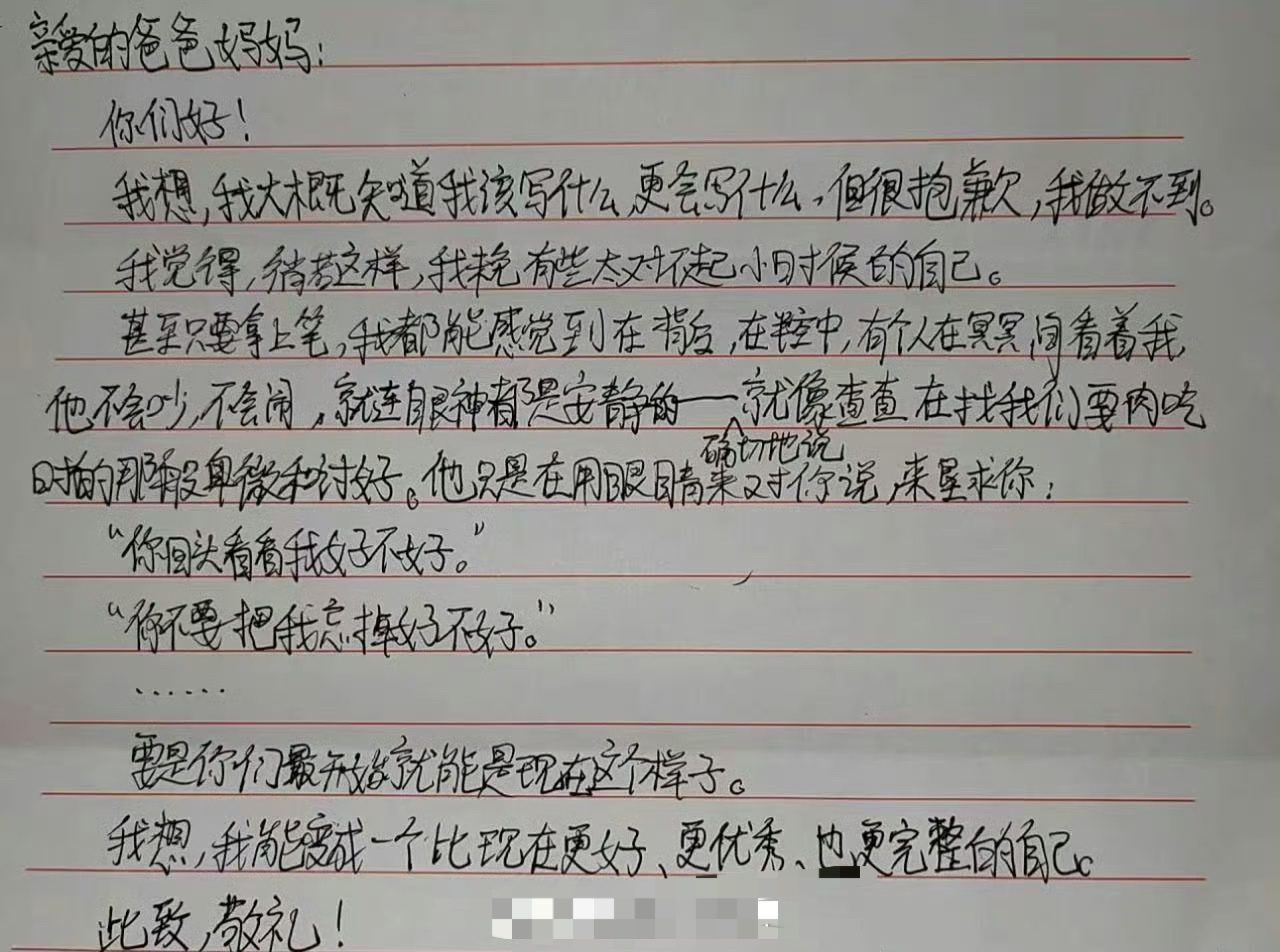 亲爱的爸爸妈妈：
你们好！
我想，我大概知道我该写什么，更会写什么，但很抱歉，我做不到。
我觉得，倘若这样，我未免有些太对不起小时候的自己。
甚至只要拿上笔，我都能感觉到在背后，在空中，有个人在冥冥间看着我，
他不会吵，不会闹，就连眼神都是安静的——就像查查在找我们要肉吃
确切地说
时的那般卑微和讨好。他只是在用眼睛来对你说，来恳求你：
“你回头看看我好不好。”
“你不要把我忘掉好不好。”
......
要是你们最开始就能是现在这个样子。
我想，我能变成一个比现在更好、更优秀、也更完整的自己。
此致，敬礼！